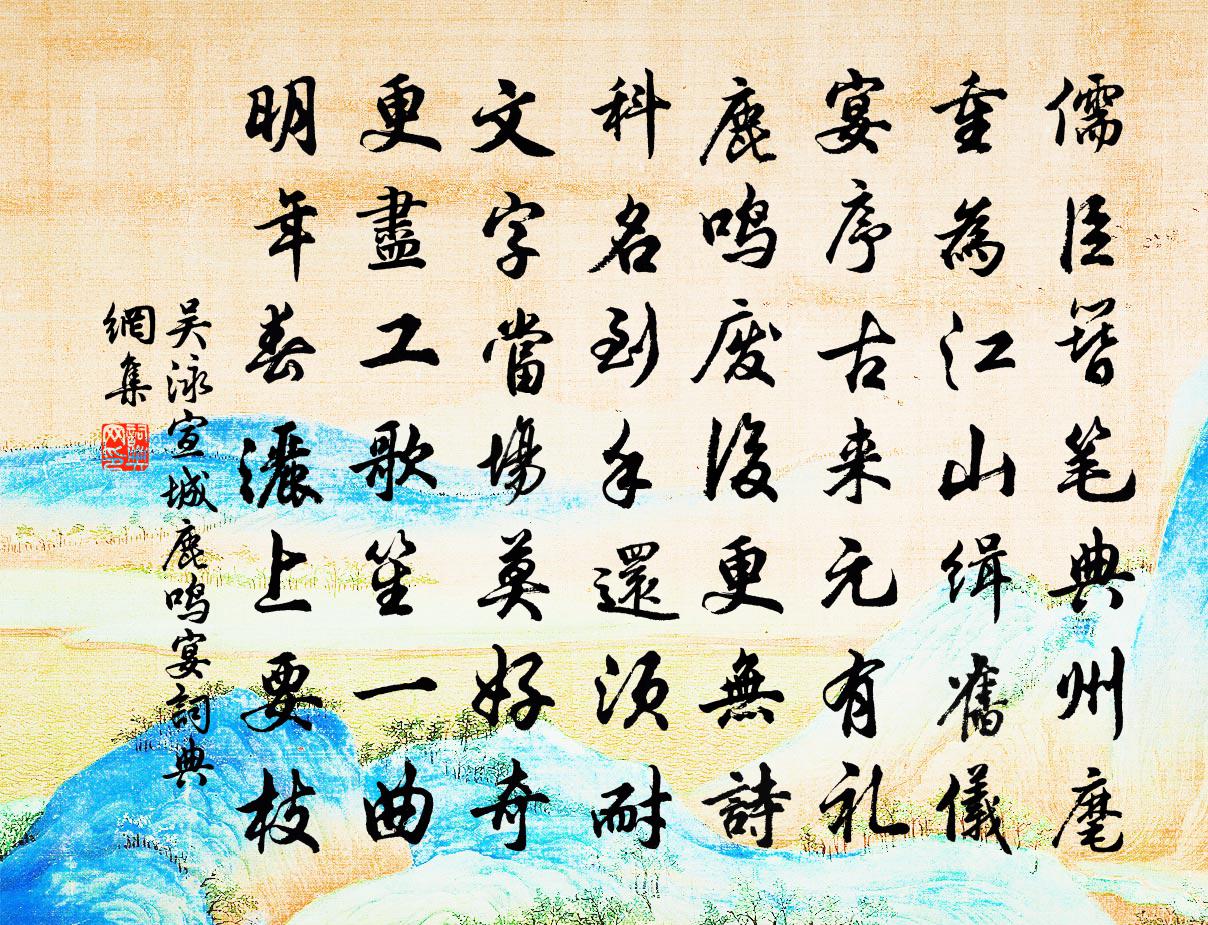 儒臣簪笔典州麾
重為江山緝舊儀
宴序古来元有礼
鹿鸣废後更無詩
科名到手還须耐
文字當場莫好奇
更盡工歌笙一曲
明年春灑上要枝
吴泳宣城鹿鸣宴詞典
網集